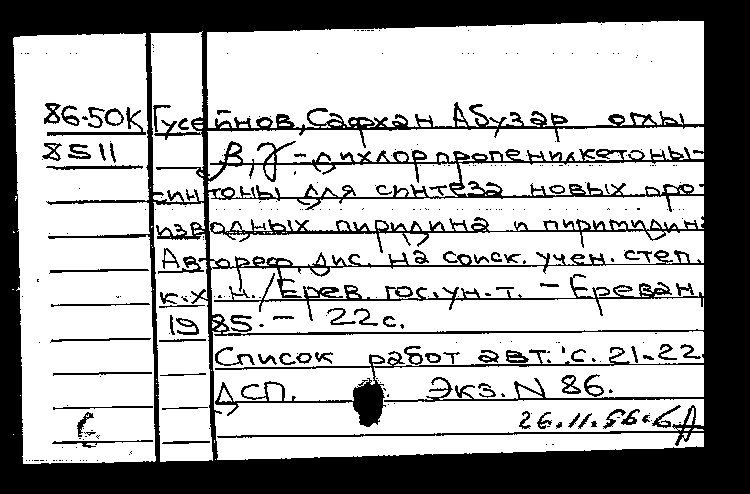 86-50К Гусейнов, Сафхан Абузар оглы
8511 β, γ-дихлорпропенилкетоны-
синтоны для синтеза новых про-
изводных пиридина и пиримидина
Автореф. дис. на соиск. учен. степ.
к.х.н./Ерев. гос. ун-т. - Ереван,
1985. - 22 с.
Список работ авт.: с. 21-22.
ДСП. Экз. N 86.
26.11.86.